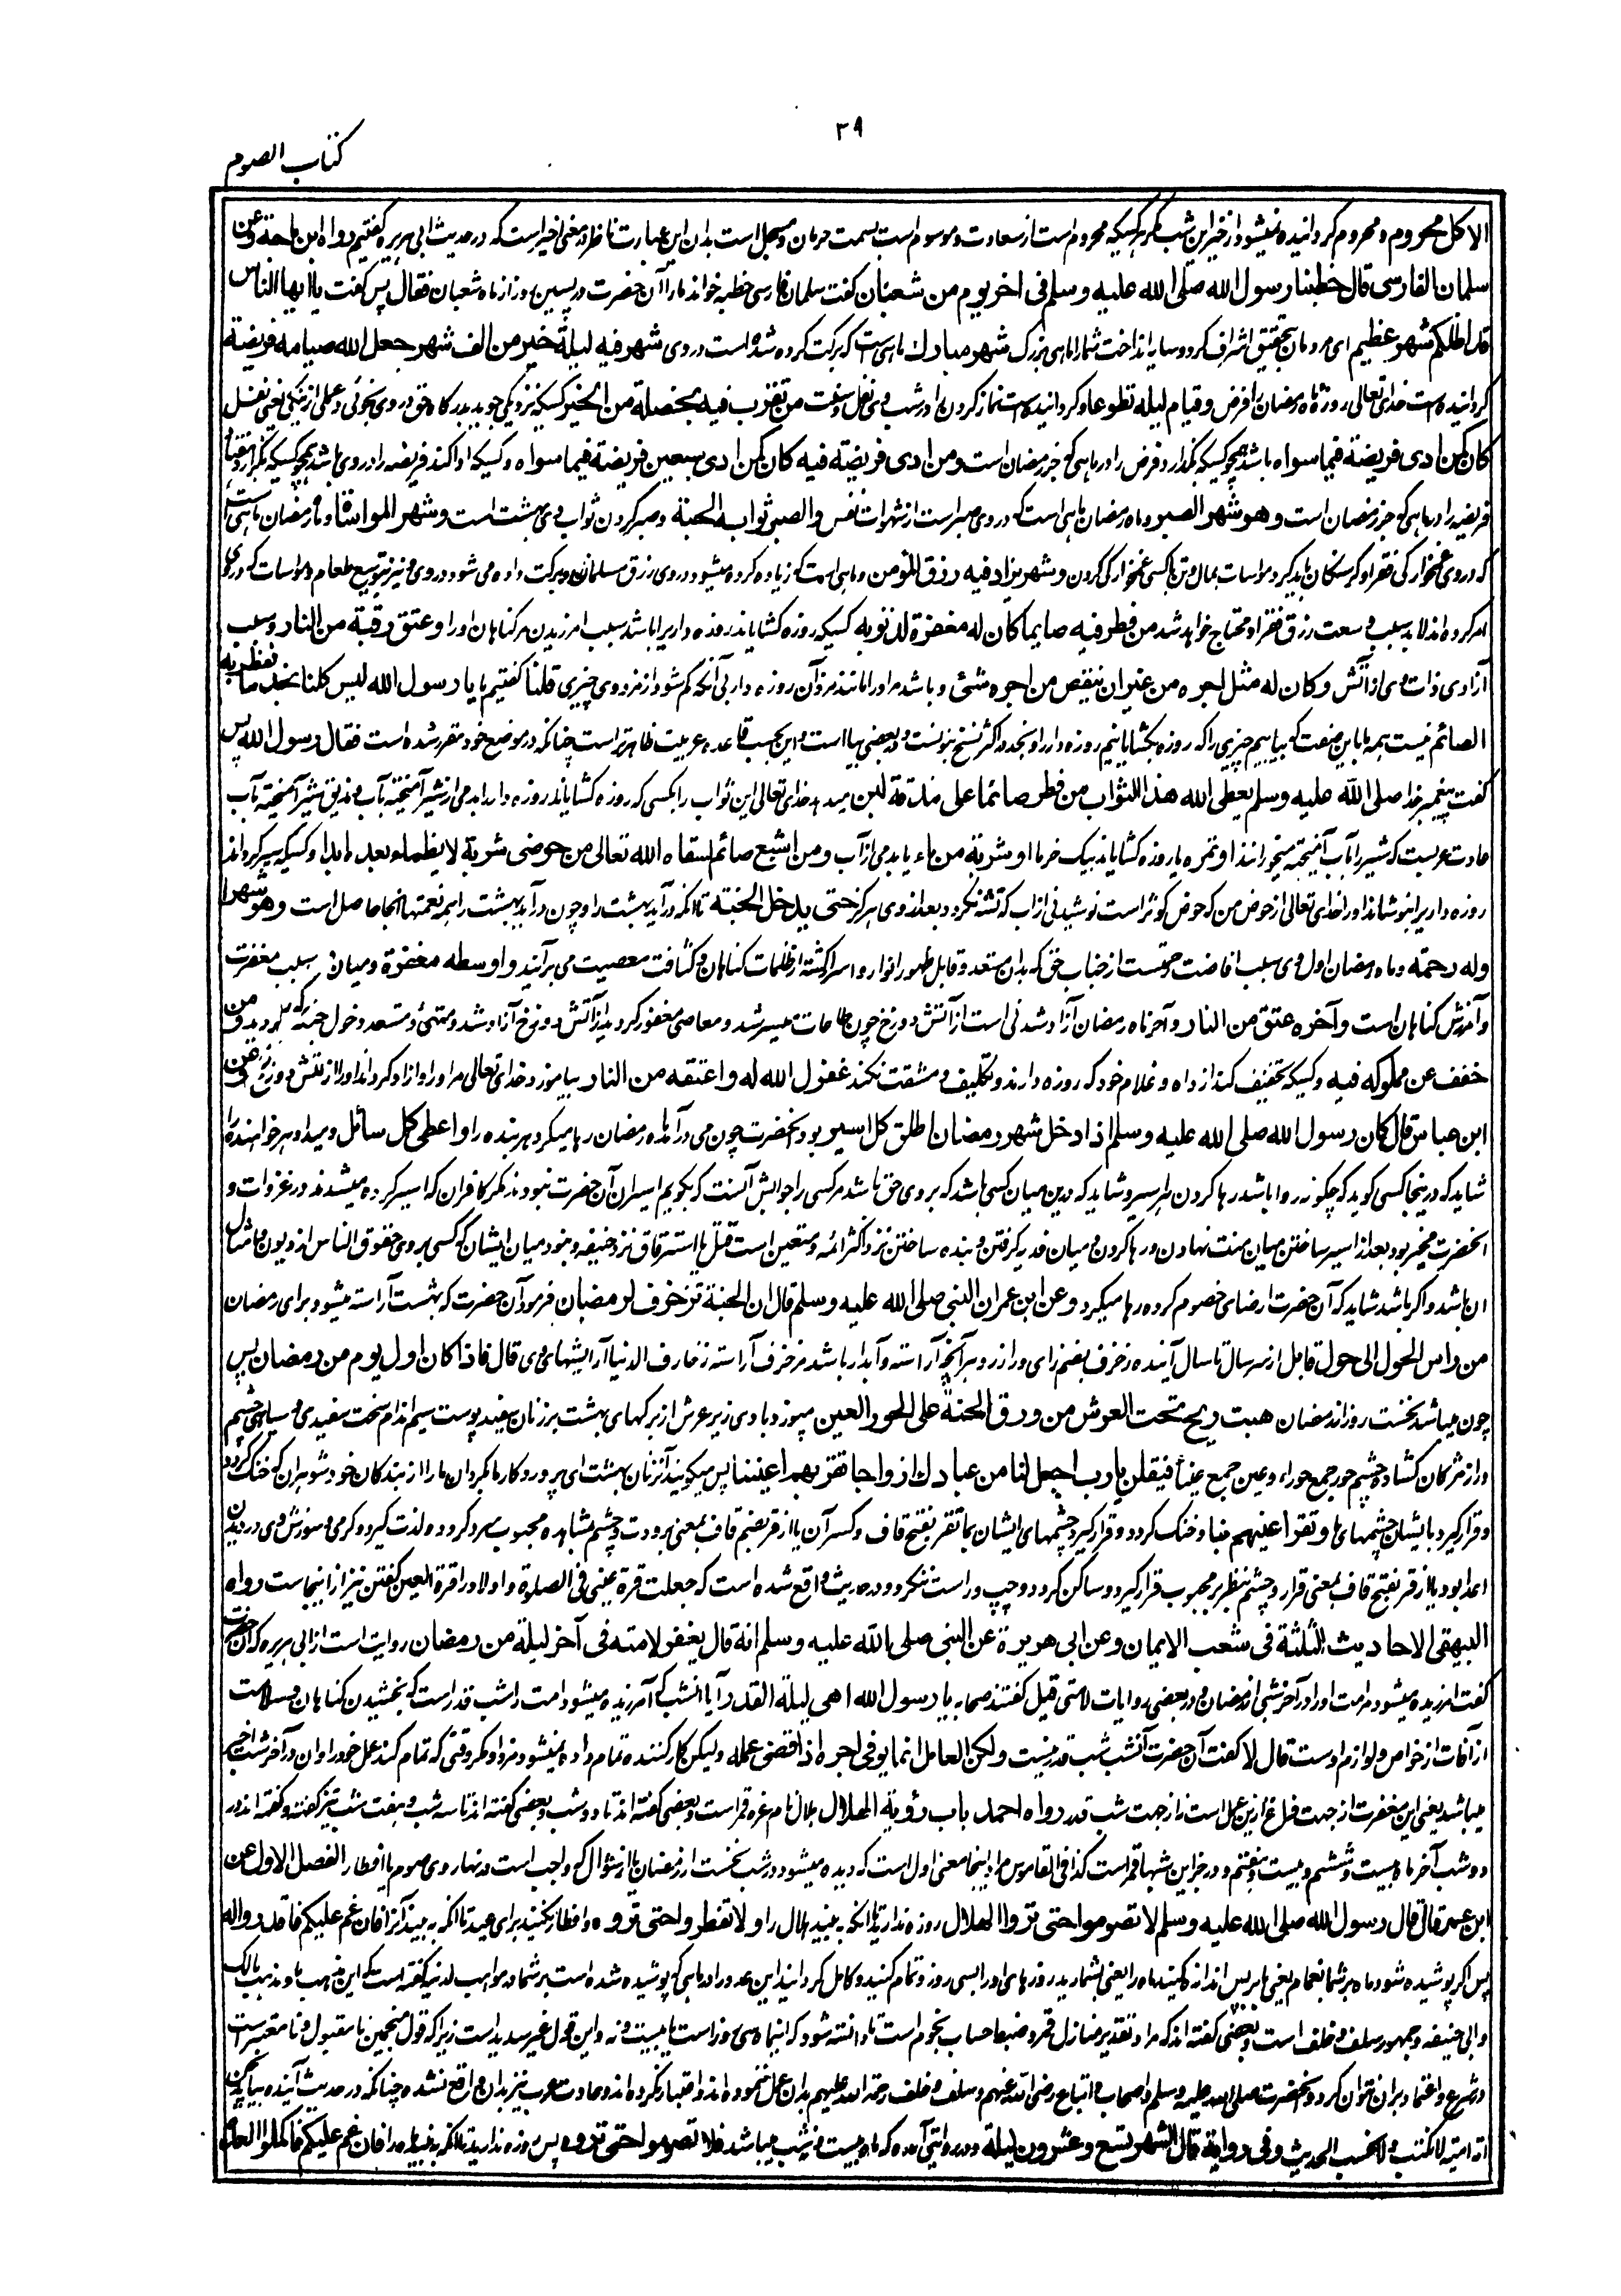 ٣٩
كتاب الصوم
الا كل محروم و محروم گردانیده نمیشود از خیر این شب مگر هر کسیکه محروم است از سعادت و موسوم است بسمت حرمان و مسجل است بدان این عبارت ناظر در معنی اخیر است که در حدیث ابی هریره گفتیم رواه ابن ماجة وعن
سلمان الفارسى قال خطبنا رسول الله صلى الله عليه وسلم فى اخر يوم من شعبان گفت سلمان فارسی خطبه خواند ما را آن حضرت در پسین روز از ماه شعبان فقال پس گفت يا ايها الناس
قد اظلكم شهر عظيم ای مردمان بتحقیق اشراف کرد و سایه انداخت شما را ماهی بزرگ شهر مبارك ماهی است که برکت کرده شده است در وی شهر فيه ليلة خير من الف شهر جعل الله صيامه فريضة
گردانیده است خدای تعالی روزهٔ ماه رمضان را فرض وقيام ليله تطوعا و گردانیده است نماز کردن را در شب وی نفل و سنت من تقرب فيه بخصلة من الخير کسیکه نزدیکی جوید بدرگاه حق در وی بخوئی و عملی از نیکی یعنی نفل
كان كمن ادى فريضة فيما سواه باشد همچو کسیکه بگذارد فرض را در ماهی که جز رمضان است ومن ادى فريضة فيه كان كمن ادى سبعين فريضة فيما سواه و کسیکه ادا کند فریضه را در وی باشد همچو کسیکه بگزارد هفتاد
فریضه را در ماهی که جز رمضان است وهو شهر الصبر و ماه رمضان ماهی است که در وی صبر است از شهوات نفس والصبر ثوابه الجنة و صبر کردن ثواب وی بهشت است وشهر المواساة و ماه رمضان ماهی است
که در وی غمخوارگی فقرا و گرسنگان باید کرد مواسات بمال و تن با کسی غمخوارگی کردن وشهر يزاد فيه رزق المؤمن و ماهی است که زیاده کرده میشود در وی رزق مسلمان و برکت داده می شود در وی و نیز بتوسیع طعام و مواسات که در وی
امر کرده اند لابد سبب وسعت رزق فقرا و محتاج خواهد شد من فطر فيه صايما كان له مغفرة لذنوبه کسیکه روزه کشایاند روزه داریرا باشد سبب امرزیدن مر گناهان او را وعتق رقبة من النار و سبب
آزادی ذات وی از آتش وكان له مثل اجره من غير ان ينقص من اجره شئ و باشد مر او را مانند مزد آن روزه دار بی آنکه کم شود از مزد وی چیزی قلنا گفتیم ما يا رسول الله ليس كلنا نجد ما نفطر به
الصائم نیست همه ما باین صفت که بیابیم چیزی را که روزه بکشایانیم روزه دار را و نجد در اکثر نسخ بنونست و در بعضی بیا است و این بحسب قاعده عربیت ظاهرتر است چنانکه در موضع خود مقرر شده است فقال رسول الله پس
گفت پیغمبر خدا صلى الله عليه وسلم يعطى الله هذا الثواب من فطر صائما على مذقة لبن میدهد خدای تعالی این ثواب را بکسی که روزه کشایاند روزه دار را بدمی از شیر آمیخته بآب و مذیق شیر آمیخته بآب
عادت عربست که شیر را بآب آمیخته میخورانند او تمرة یا روزه کشایاند بیک خرما او شربة من ماء یا بدمی از آب ومن اشبع صائم اسقاه الله تعالى من حوضى شربة لا يظماء بعده ابدا و کسیکه سیر گرداند
روزه داریرا بنوشاند او را خدای تعالی از حوض من که حوض کوثر است نوشیدنی از آب که تشنه نگردد بعد از وی هرگز حتى يدخل الجنة تا آنکه در آید بهشت را و چون در آید بهشت را همه نعمتها آنجا حاصل است وهو شهر اوله
وله رحمة و ماه رمضان اول وی سبب افاضت رحمتست از جناب حق که بدان مستعد و قابل ظهور انوار و اسرار گشته از ظلمات گناهان و کثافت معصیت می برآیند واوسطه مغفرة و میان سبب مغفرت
و آمرزش گناهان است وآخره عتق من النار و آخر ماه رمضان آزاد شدنی است از آتش دوزخ چون طاعات میسر شد و معاصی مغفور گردید از آتش دوزخ آزاد شد و متهیئ و مستعد دخول جنت گردید ومن
خفف عن مملوكه فيه و کسیکه تخفیف کند از داه و غلام خود که روزه دارند و تکلیف و مشقت نکند غفر الله له واعتقه من النار بیامرزد خدای تعالی مر او را و آزاد گرداند او را از آتش دوزخ وعن
ابن عباس قال كان رسول الله صلى الله عليه وسلم اذا دخل شهر رمضان اطلق كل اسير بود آنحضرت چون می در آمد ماه رمضان رها میکرد هر بنده را واعطى كل سائل و میداد هر خواهنده را
شاید که در ینجا کسی گوید که چگونه روا باشد رها کردن هر اسیر و شاید که درین میان کسی باشد که بر وی حق باشد مر کسی را جوابش آنست که بگویم اسیران آن حضرت نبودند مگر کافران که اسیر کرده میشدند در غزوات و
آنحضرت مخیر بود بعد از اسیر ساختن میان منت نهادن و رها کردن و میان فدیه گرفتن و بنده ساختن نزد اکثر ائمه و متعین است قتل یا استرقاق نزد حنیفه و نبود میان ایشان که کسی بر وی حقوق الناس از دیون و امثال
ان باشد و اگر باشد شاید که آن حضرت ارضای خصوم کرده رها میکرد وعن ابن عمر ان النبى صلى الله عليه وسلم قال ان الجنة تزخرف لرمضان فرمود آن حضرت که بهشت آراسته میشود برای رمضان
من راس الحول الى حول قابل از سر سال تا سال آینده زخرف بضم زای و را زر و هر آنچه آراسته و آبدار باشد مزخرف آراسته زخارف الدنیا آرایشهای وی قال فاذا كان اول يوم من رمضان پس
چون میباشد نخست روز از رمضان هبت ريح تحت العرش من ورق الجنة على الحور العين میوزد بادی زیر عرش از برگهای بهشت بر زنان سفید پوست سیم اندام سخت سفیدی و سیاهی چشم
دراز مژگان کشاده چشم حور جمع حوراء و عین جمع عیناء فيقلن يارب اجعل لنا من عبادك ازواجا تقر بهم اعيننا پس میگویند آنزنان بهشت ای پروردگار ما بگردان ما را از بندگان خود شوهران که خنک گردد
و قرار گیرد بایشان چشمهای ما وتقر اعينهم بنا و خنک گردد و قرار گیرد چشمهای ایشان بما تقر بفتح قاف و کسر آن یا از قر بضم قاف بمعنی برودت و چشم بمشاهده محبوب سرد گردد و لذت گیرد و گرمی و سوزش وی در دیدن
اعدا بود یا از قر بفتح قاف بمعنی قرار و چشم بنظر بر محبوب قرار گیرد و ساکن گردد و چپ و راست ننگرد و در حدیث واقع شده است که جعلت قرة عینی فی الصلوة و اولاد را قرة العین گفتن نیز از اینجاست رواه
البيهقى الاحاديث الثلثة فى شعب الايمان وعن ابى هريرة عن النبى صلى الله عليه وسلم انه قال يغفر لامته فى آخر ليلة من رمضان روایت است از ابی هریره که آن حضرت
گفت امرزیده میشود مر امت او را در آخر شبی از رمضان و در بعضی روایات لامتی قيل گفتند صحابه يا رسول الله اهى ليلة القدر آیا انشب که آمرزیده میشود امت را شب قدر است که بخشیدن گناهان و سلامت
از آفات از خواص و لوازم اوست قال لا گفت آن حضرت آنشب شب قدر نیست ولكن العامل انما يوفى اجره اذا قضى عمله و لیکن کار کننده تمام داده نمیشود مزد او مگر وقتی که تمام کند عمل خود را و ان در آخر شب
میباشد یعنی این مغفرت از جهت فراغ از ین عمل است نه از جهت شب قدر رواه احمد باب رؤية الهلال هلال نام غره قمر است و بعضی گفته اند تا دو شب و بعضی گفته اند تا سه شب و هفت شب نیز گفته و گفته اند در
دو شب آخر ماه بیست و ششم و بیست و هفتم و در جز این شبها قمر است کذا فی القاموس مراد اینجا معنی اول است که دیده میشود در شب نخست از رمضان یا از شوال که واجب است در نهار وی صوم یا افطار الفصل الاول عن
ابن عمر قال قال رسول الله صلى الله عليه وسلم لا تصوموا حتى تروا الهلال روزه ندارید تا آنکه به بینید هلال را ولا تفطروا حتى تروه و افطار نکنید برای عید تا آنکه به بینید آنرا فان غم عليكم فاقدروا له
پس اگر پوشیده شود ماه بر شما بغمام یعنی ابر پس اندازه کنید ماه را یعنی بشمارید روزهای او را بسی روز و تمام کنید و کامل گردانید این عدد را در ماهی که پوشیده شده است بر شما در مواهب لدنیه گفته است که این مذهب ما و مذهب مالک
و ابی حنیفه و جمهور سلف و خلف است و بعضی گفته اند که مراد تقدیر منازل قمر و ضبط حساب نجوم است تا دانسته شود که این ماه سی روز است یا بیست و نه و این قول غیر سدید است زیرا که قول منجمین نا مقبول و نا معتبر است
در شرع و اعتماد بر آن نتوان کرد و آنحضرت صلى الله عليه وسلم و اصحاب و اتباع رضی الله عنهم و سلف و خلف رحمة الله علیهم بدان عمل ننموده اند و اعتبار نکرده اند و عادت عرب نیز بدان واقع نشده چنانکه در حدیث آینده بیاید نحن
امة امیة لا نکتب و لا نحسب الحدیث وفى رواية قال الشهر تسع وعشرون ليلة و در روایتی آمده که ماه بیست و نه شب میباشد فلا تصوموا حتى تروه پس روزه ندارید تا آنکه به بینید ماه را فان غم عليكم فاكملوا العدة